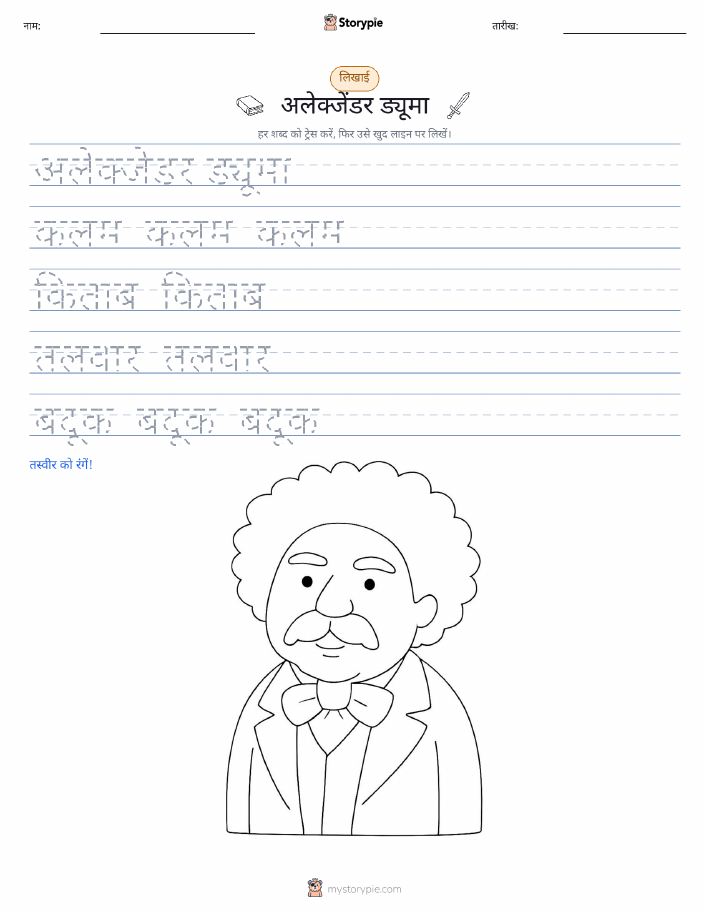 नाम:
Storypie
तारीख:
लिखाई
अलेक्जेंडर ड्यूमा
हर शब्द को ट्रेस करें, फिर उसे खुद लाइन पर लिखें।
अलेक्जेंडर ड्यूमा
कलम कलम कलम
किताब किताब
तलवार तलवार
बंदूक बंदूक बंदूक
तस्वीर को रंगें!
mystorypie.com